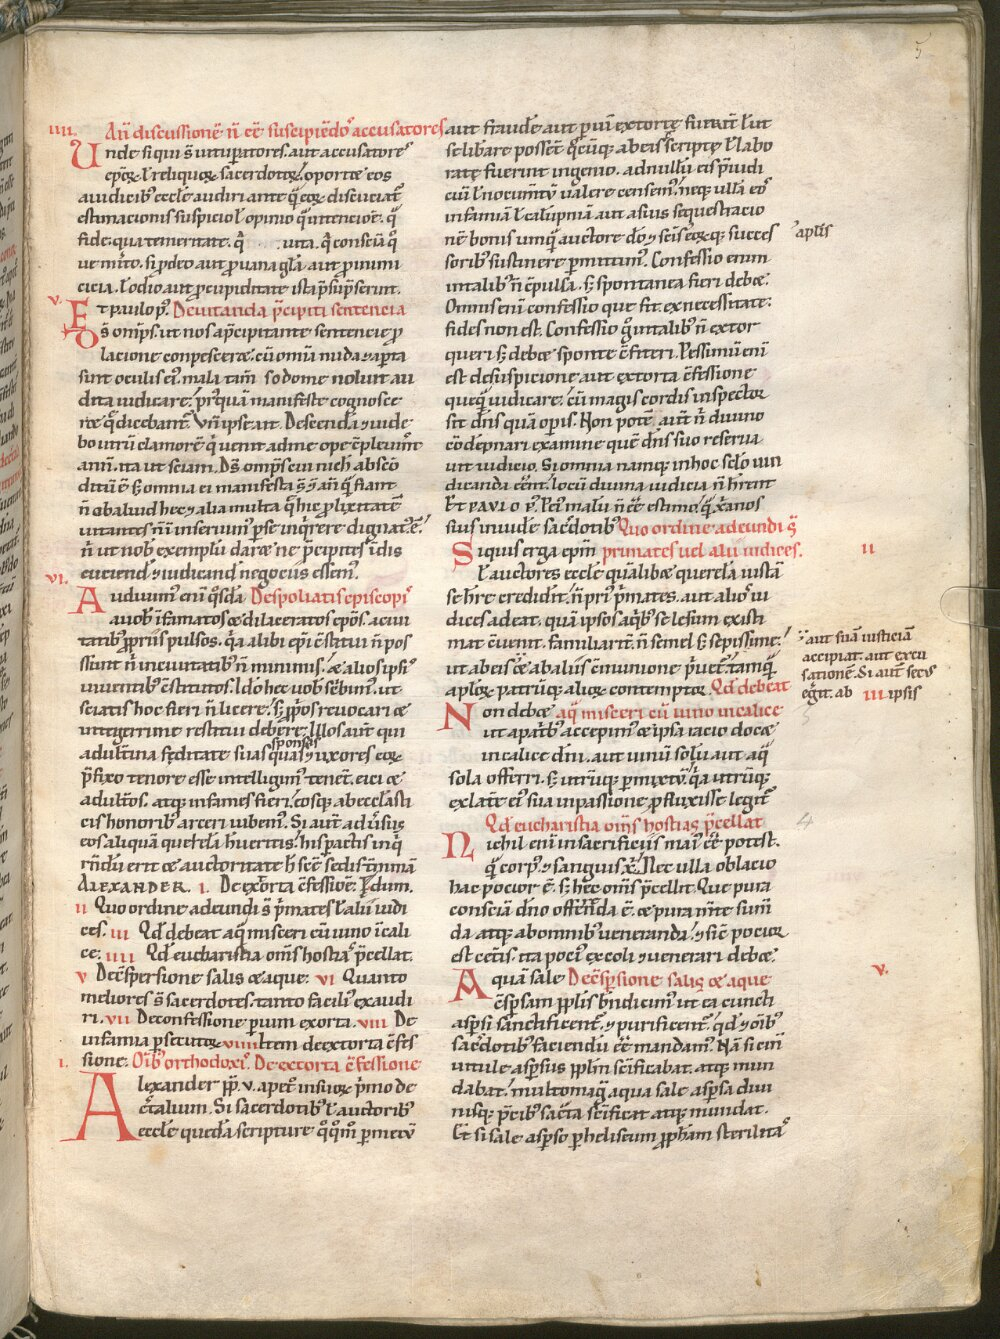 5
IIII. An̄ discussionē n̄ eē̄ suscipiēdos accusatores
Unde siqui s̄ vituꝑatores aut accusatores
ep̄oꝝ. ł reliquoꝝ sacerdotū. oportet eos
a iudicibꝰ eccłe audiri ante
estimacionis suspicio ł opinio
fide. qua temeritate. q̄ vita. q̄ conscīa q̄
ue mīto. si ꝓ deo aut ꝓ uana gła. aut ꝓ inimi
cicia. ł odio aut ꝓ cupiditate ista p̄sūpserint.
v. Et paulo pꝰ. De uitanda p̄cipiti sentencia
Dꝰs om̄ps. ut nos a p̄cipitante sentencie ꝓ
lacione conpesceret. cū omīa nuda ⁊ aꝑta
sint oculis eiꝰ. mala tam̄ sodome noluit au
dita iudicare. priꝰ quā manifeste cognosce
ret q̄ dicebant. Vn̄ ipse ait. Descendā ⁊ uide
bo utrū clamorē q̄ uenit ad me ope c̄pleuint
an n̄. ita ut sciam. Ds̄ om̄ps cui nich̄ abscō
ditū ē s; omīa ei manifesta s̄ ⁊ an̄ q̄ fiant
n̄ ob aliud hec ⁊ alia multa q̄ hic ꝓlixitatē
uitantes n̄ inseruimꝰ ꝑ se inq̄rere dignatꝰ ē.
n̄ ut nob̄ exemplū daret ne p̄cipites in̄dis
cuciend̄ ⁊ iudicand̄ negociis essemꝰ.
VI. Audiuimꝰ enī qꝰsdā De spoliatis episcopis
a uob̄ īfamatos et dilaceratos ep̄os. ac ciui
tatibꝰ ꝓpriis pulsos. q̄a alibi ep̄i c̄stitui n̄ pos
sunt n̄ in ciuitatibꝰ n̄ minimis. et alios ipsis
uiuentibꝰ c̄stitutos. Ido hec uob̄ sc̄bimꝰ. ut
sciatis hoc fieri n̄ licere. s; ꝓp̄os reuocari et
integerrime restitui debere. Illos aut̄ qui
sponsas
adult̄ina feditate suas quasi uxores eoꝝ
p̄fixo tenore esse intelligimꝰ tenet̄. eici et
adult̄os. atq; infames fieri. eosq; ab eccłasti
cis honoribꝰ arceri iubemꝰ. Si aut̄ aduersus
eos aliquā querelā habueritis. his ꝑactis inq̄
rēdū erit et auctoritate hꝰ sc̄e sedis t̄minā
ALEXANDER. I. De exorta c̄fessiōe. ꝑdum.
II Quo ordine adeundi s̄ p̄mates ł alii iudi
ces. III Qd̄ debeat aq̄ misceri cū uino ī cali
ce. IIII Qd̄ eucharistia om̄s hostias p̄cellat.
V De c̄spersione salis et aque. VI Quanto
meliores s̄ sacerdotes. tanto faciliꝰ exaudi
ri. VII De confessione ꝑ uim exorta. VIII De
infamia ꝑsecutoꝝ. VIIII Item de extorta c̄fes
sione.
I. Om̄ibꝰ orthodoxis. De extorta c̄fessione
Alexander p̄p. v. ap̄tꝰ in suoꝝ p̄mo de
c̄talium. Si sacerdotibꝰ ł auctoribꝰ
eccłe quedā scripture ꝑ metū
aut fraudē aut ꝑ uī extorte fuerit ł ut
se libare possēt q̄cūq; ab eis scripte ł labo
rate fuerint ingenio. ad nullū eis p̄iudi
ciū ł nocumtū ualere censemꝰ. neq; ullā eos
infamiā ł calūpniā aut a suis sequestracio
nē bonis umq̄ auctore dō ⁊ sc̄is eiꝰq; succes
sorib; sustinere ꝑmittimꝰ. Confessio enim
in talibꝰ n̄ c̄pulsa. s; spontanea fieri debet.
Omnis enī confessio que fit. ex necessitate:
fides non est. Confessio q̄ in talibꝰ n̄ extor
queri s; debet sponte c̄fiteri. Pessimū enī
est de suspicione aut extorta c̄fessione
queq̄ iudicare. cū magis cordis inspector
sit dn̄s quā oꝑis. Non potest aut̄ n̄ diuino
cōdēpnari examine quē dn̄s suo reserua
uit iudicio. Si omnia namq; in hoc sc̄lo uin
dicanda cēnt. locū diuina iudicia n̄ hrēnt
Et paulo p̄.
siꝰ inuidē sacerdotibꝰ Quo ordine adeundi s̄
Siquis erga ep̄m primates uel alii iudices.
ł auctores eccłe quālibet querelā iustā
se hre̅ crediderit. n̄ priꝰ p̄mates. aut alios iu
dices adeat. quā ipsos a qꝰbꝰ se lesum existi
mat c̄uenit. familiarit̄. n̄ semel s; sepissime.
ut ab eis et ab aliis c̄munione p̄uet̄. tamq̄
ap̄loꝝ patrūq; alioꝝ contemptor. Qd̄ debeat
Non debet aq̄ misceri cū uino in calice
ut a patribꝰ accepimꝰ et ipsa racio docet
in calice dn̄i. aut uinū solū. aut aq̄
sola offerri. s; utrūq; ꝑmixtū. q̄a utrūq;
ex latē eiꝰ sua in passione ꝓfluxisse legit̄.
Qd̄ eucharistia om̄s hostias p̄cellat
Nichil enī in sacrificiis maiꝰ ēē potest.
q̄ corpꝰ ⁊ sanguis x̄. Nec ulla oblacio
hac pocior ē. s; hec om̄s p̄cellit. Que pura
conscīa dn̄o offerēda ē. et pura mēte sum̄
da atq; ab omnibꝰ ueneranda. ⁊ sic̄ pocior
est cet̄is. ita pociꝰ excoli ⁊ uenerari debet.
Aquā sale De c̄sp̄sione salis et aque
c̄sp̄sam ꝓplis b̄ndicimꝰ ut ea cuncti
asp̄si sanctificent̄ ⁊ purificent̄. qd̄ ⁊ oībꝰ
sacerdotibꝰ faciendū ēē mandamꝰ. Nā si cinꝰ
uitule asp̄sus ꝓplm sc̄ificabat. atq; mun
dabat. multo magꝰ aqua sale asp̄sa diui
nisq; p̄cibꝰ sacrata sc̄ificat atq; mundat.
Et si sale asp̄so ꝑ heliseum ꝓph̄am sterilitas
ap̄lis
II
aut suā iusticiā
accipiat. aut excu
sationē. Si aut̄ secꝰ
eḡit. ab III ipsis
4
v.